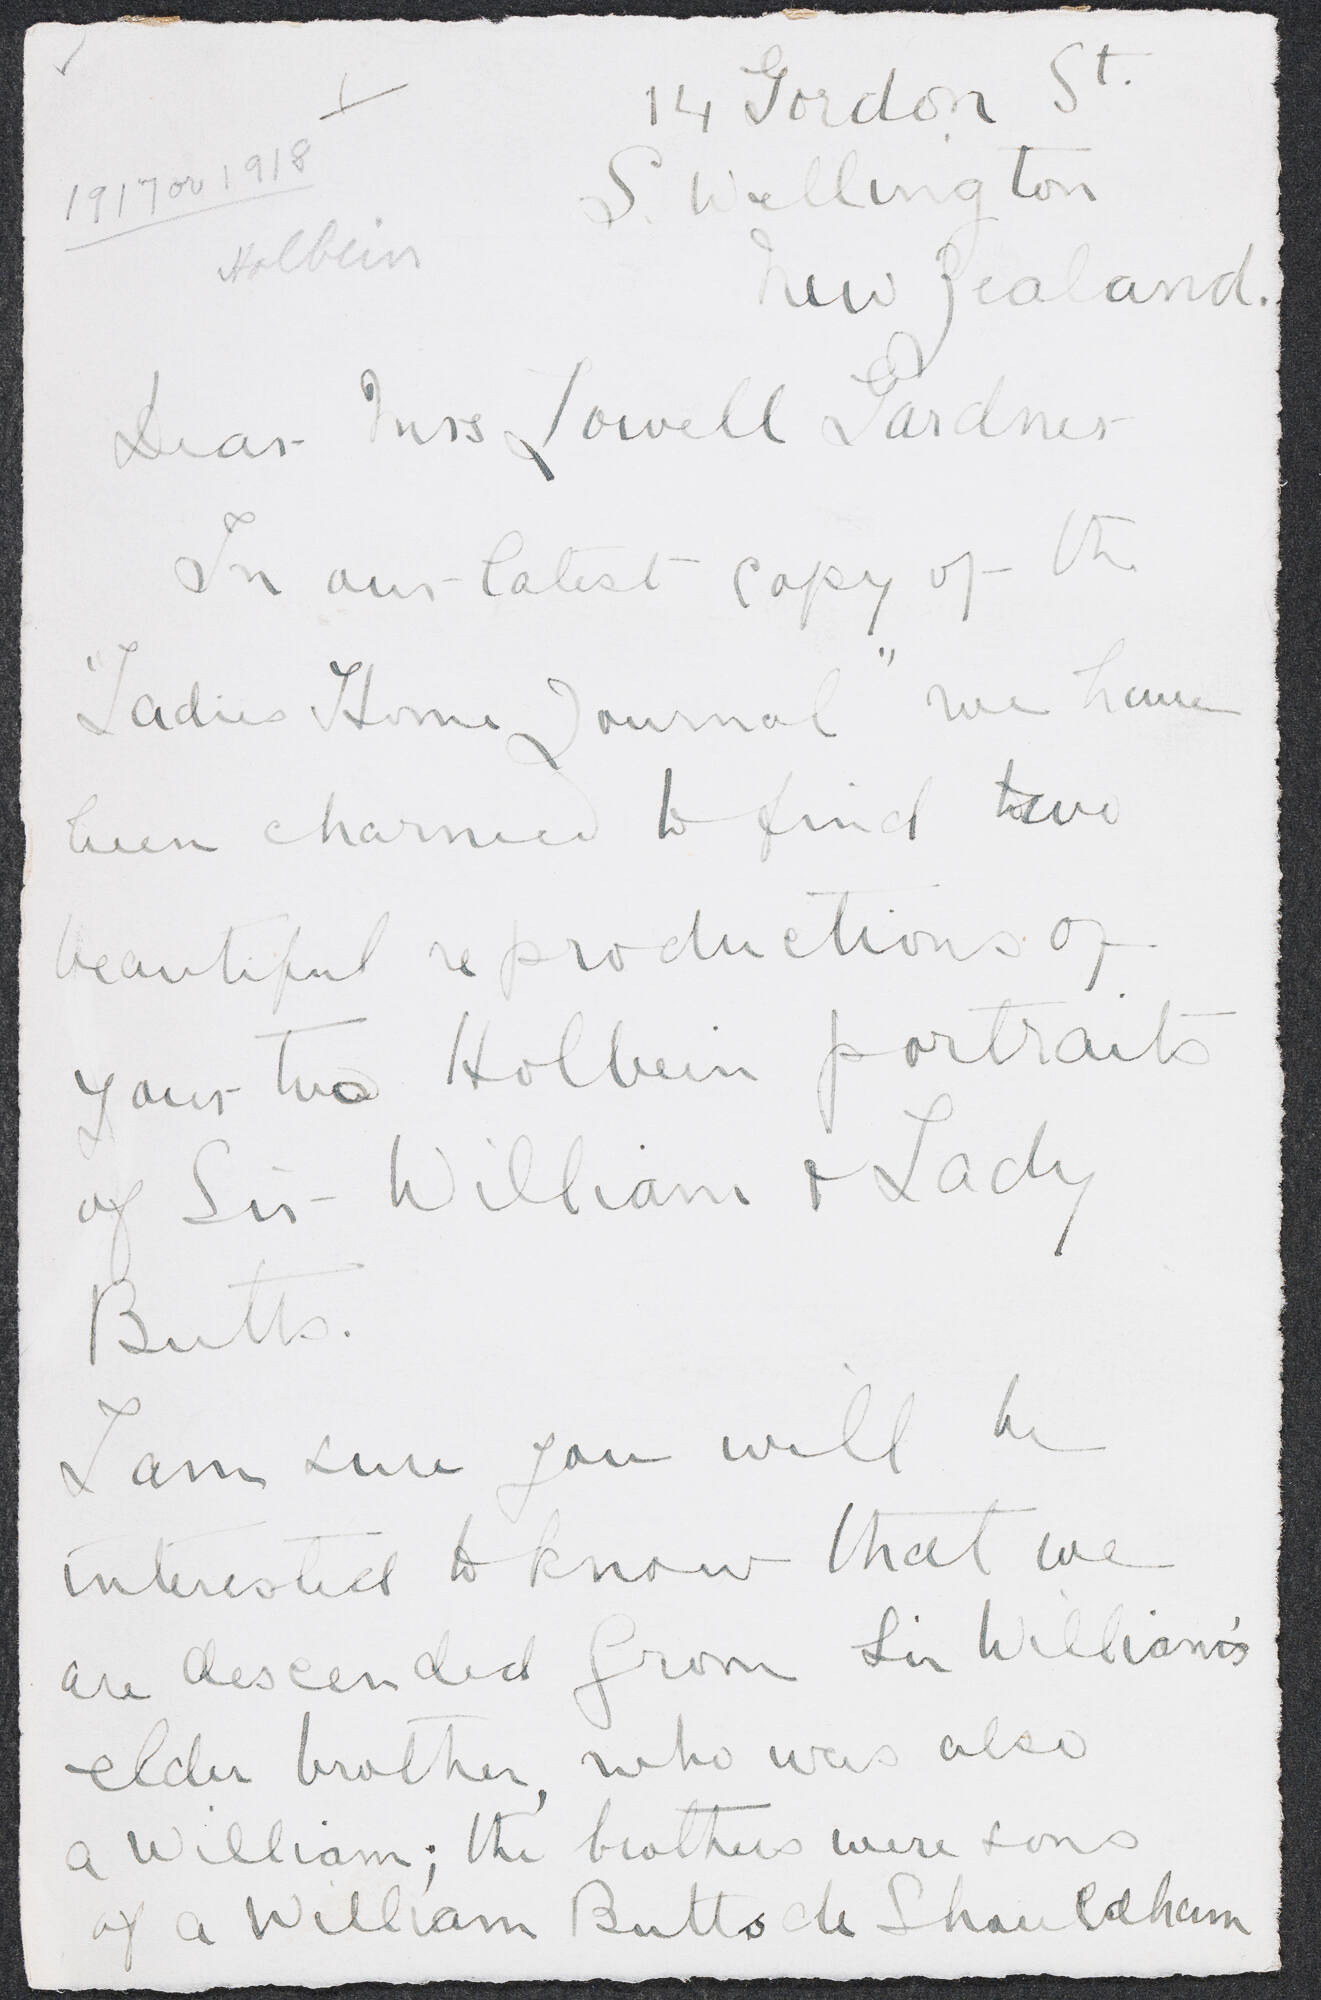 14 Gordon St.
S. Wellington
New Zealand.
1917 or 1918
Holbein
Dear Mrs Lowell Gardner
In our latest copy of the
"Ladies Home Journal" we have
been charmed to find two
beautiful reproductions of
your two Holbein portraits
of Sir William & Lady
Butts.
I am sure you will be
interested to know that we
are descended from Sir William's
elder brother, who was also
a William; the brothers were sons
of a William Butts de Shouldham